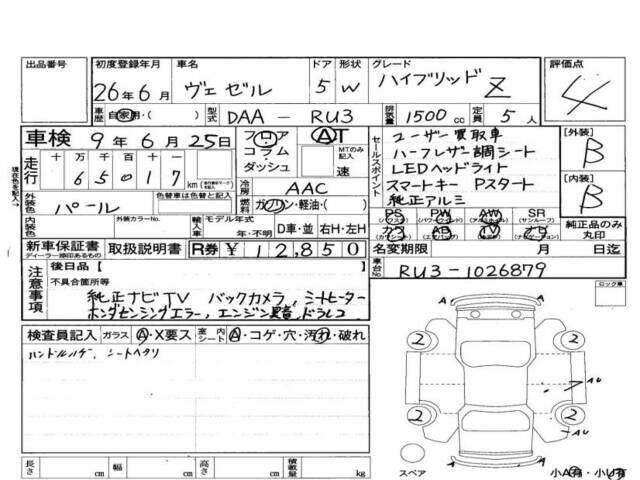 出品番号 初度登録年月 車名 ドア 形状 グレード 評価点
26年6月 ヴェゼル 5 W ハイブリッド Z 4
車歴 自家用・( ) 型式 DAA - RU3 排気量 1500 cc 定員 5 人
車検 9年6月25日 フロア AT セールスポイント ユーザー買取車 [外装] B
走行 十万千百十一 コラム MTのみ記入 ハーフレザー調シート
65017 km ダッシュ 速 LEDヘッドライト [内装] B
冷房 AAC スマートキー Pスタート
外装色 パール 色替車は色替前の色 燃料 ガソリン・軽油・( ) 純正アルミ
内装色 外装カラーNo. 輸入車 モデル年式 年・不明 D車・並 右H・左H
PS PW AW SR
カワ AB TV ナビ 純正品のみ丸印
新車保証書 取扱説明書 R券 ¥12,850 名変期限 月 日迄
ディーラー捺印あるもの
車台No. RU3-1026879
注意事項 後日品【 】
不具合箇所等
純正ナビTV バックカメラ、シートヒーター
ホンダセンシングエラー、エンジン異音、ドラレコ
ロック車
検査員記入 ガラス A・X要ス 室内シート A・コゲ・穴・汚れ・破れ
ハンドルハゲ、シートヘタリ
A
2 2
AU
2 2
AU
A A
スペア
長さ cm 幅 cm 高さ cm 積載量 kg 小A有・小U有